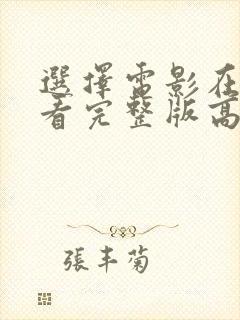 選擇雷影在
看完整版高
張丰菊